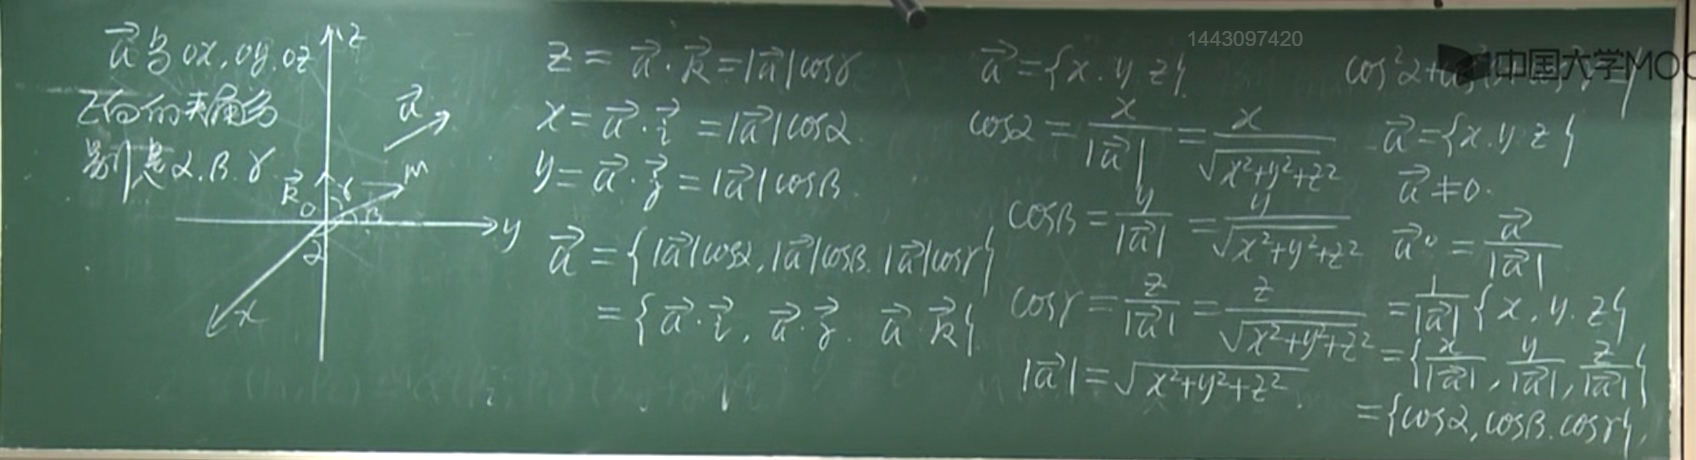 a⃗与ox,oy,oz
正向的夹角分
别是α.β.γ
z
a⃗
m
k⃗
γ
o
β
y
α
x
z = a⃗·k⃗ = |a⃗|cosγ
x = a⃗·i⃗ = |a⃗|cosα.
y = a⃗·j⃗ = |a⃗|cosβ.
a⃗ = {|a⃗|cosα, |a⃗|cosβ. |a⃗|cosγ}
= {a⃗·i⃗, a⃗·j⃗. a⃗·k⃗}.
1443097420
a⃗ = {x.y.z}.
cosα = x/|a⃗| = x/√(x²+y²+z²)
cosβ = y/|a⃗| = y/√(x²+y²+z²)
cosγ = z/|a⃗| = z/√(x²+y²+z²)
|a⃗| = √(x²+y²+z²).
cos²α+
中国大学MOOC
a⃗ = {x.y.z}
a⃗ ≠ 0.
a⃗° = a⃗/|a⃗|
= 1/|a⃗| {x,y.z}
= {x/|a⃗|, y/|a⃗|, z/|a⃗|}
= {cosα, cosβ. cosγ}.